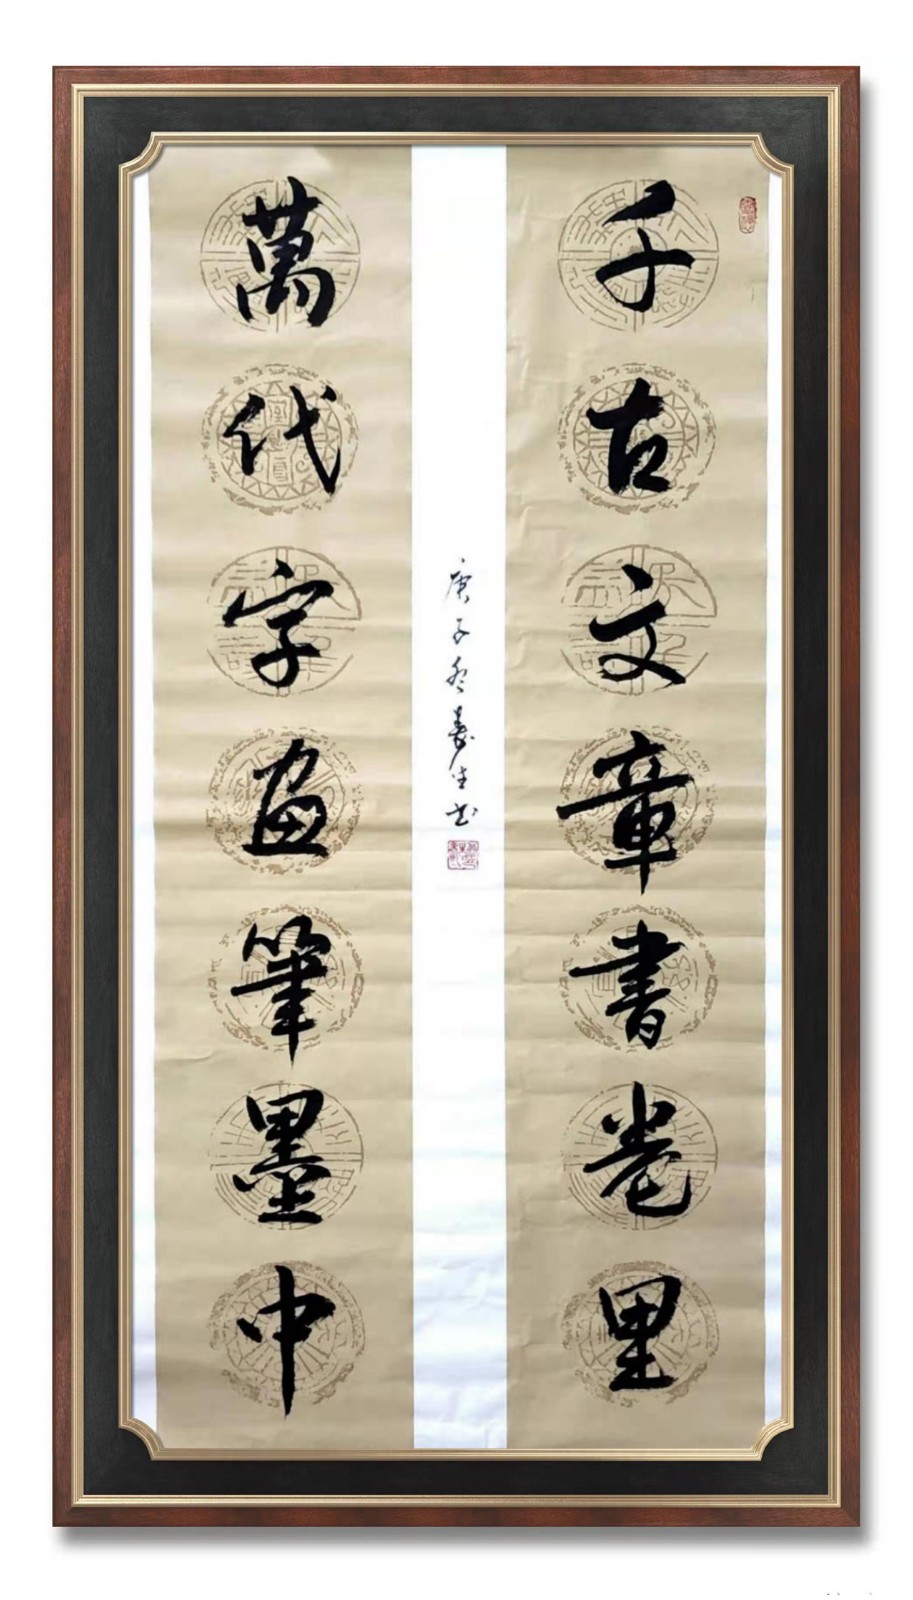 千古文章書卷里
萬代字畫筆墨中
庚子冬春生书